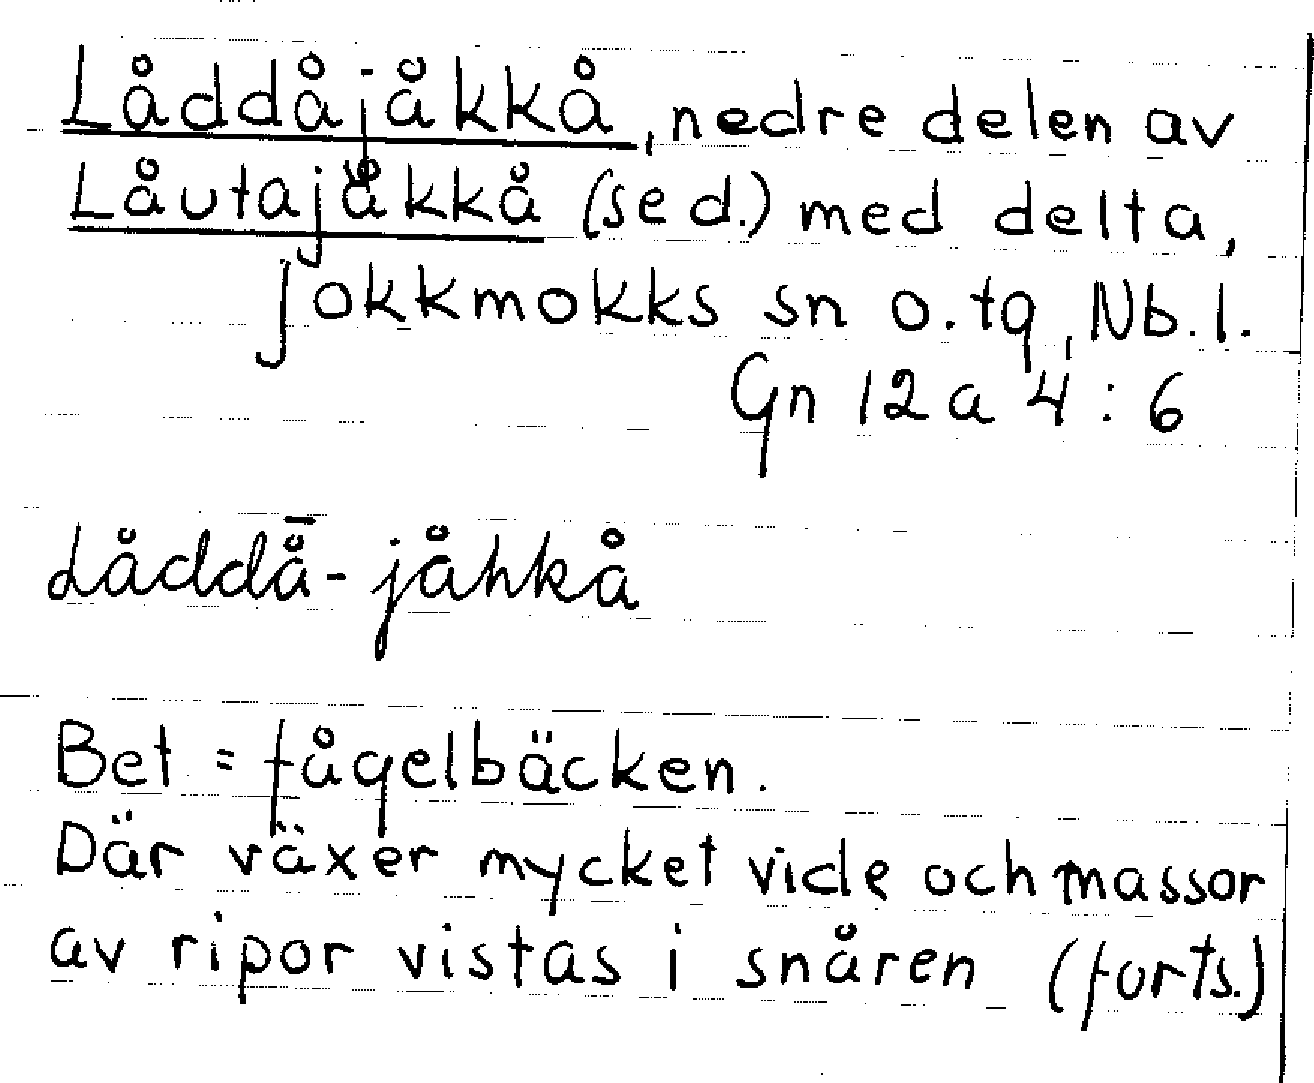 Låddåjåkkå, nedre delen av
Låutajåkkå (se d.) med delta,
Jokkmokks sn o. tg, Nb. l.
Gn 12 a 4 : 6
Låddå̄-jåhkå
Bet = fågelbäcken.
Där växer mycket vide och massor
av ripor vistas i snåren (forts.)